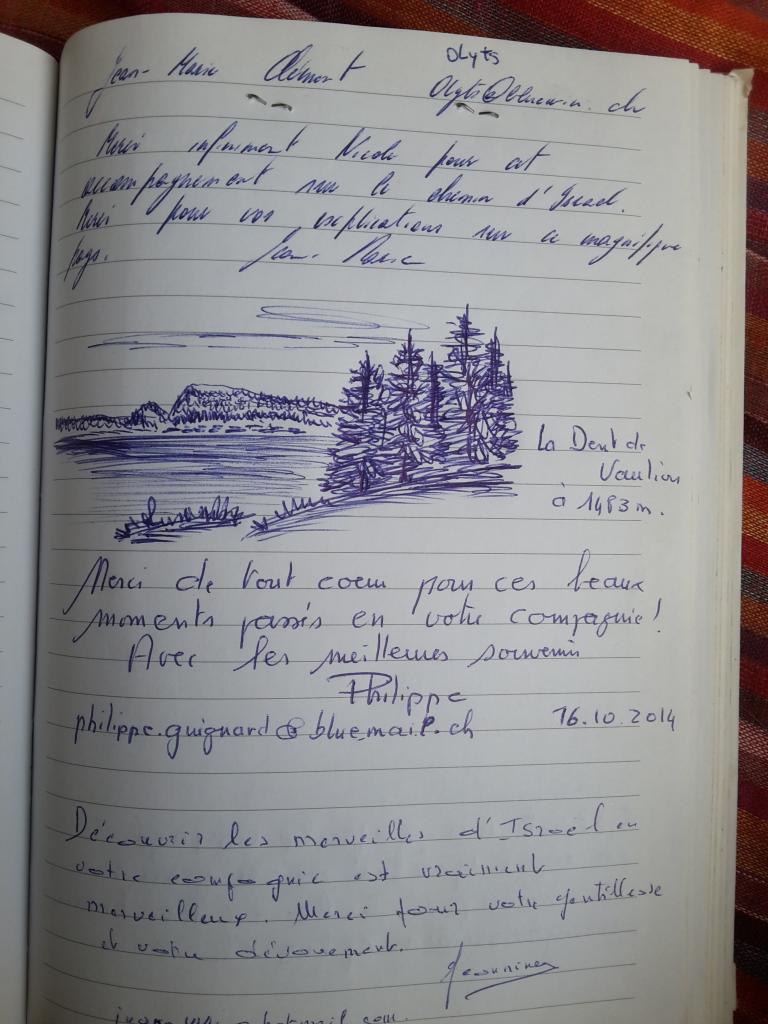 Olyts
Jean-Marie Clément Olyts@bluewin.ch
Merci infiniment Nicole pour cet
accompagnement sur le chemin d'Israel.
Merci pour vos explications sur ce magnifique
pays. Jean-Marie
La Dent de
Vaulion
à 1483 m.
Merci de tout coeur pour ces beaux
moments passés en votre compagnie!
Avec les meilleures souvenirs
Philippe
philippe.guignard@bluemail.ch 16.10.2014
Découvrir les merveilles d'Israël en
votre compagnie est vraiment
merveilleux. Merci pour votre gentillesse
et votre dévouement.
Jeannine
hotmail.com.